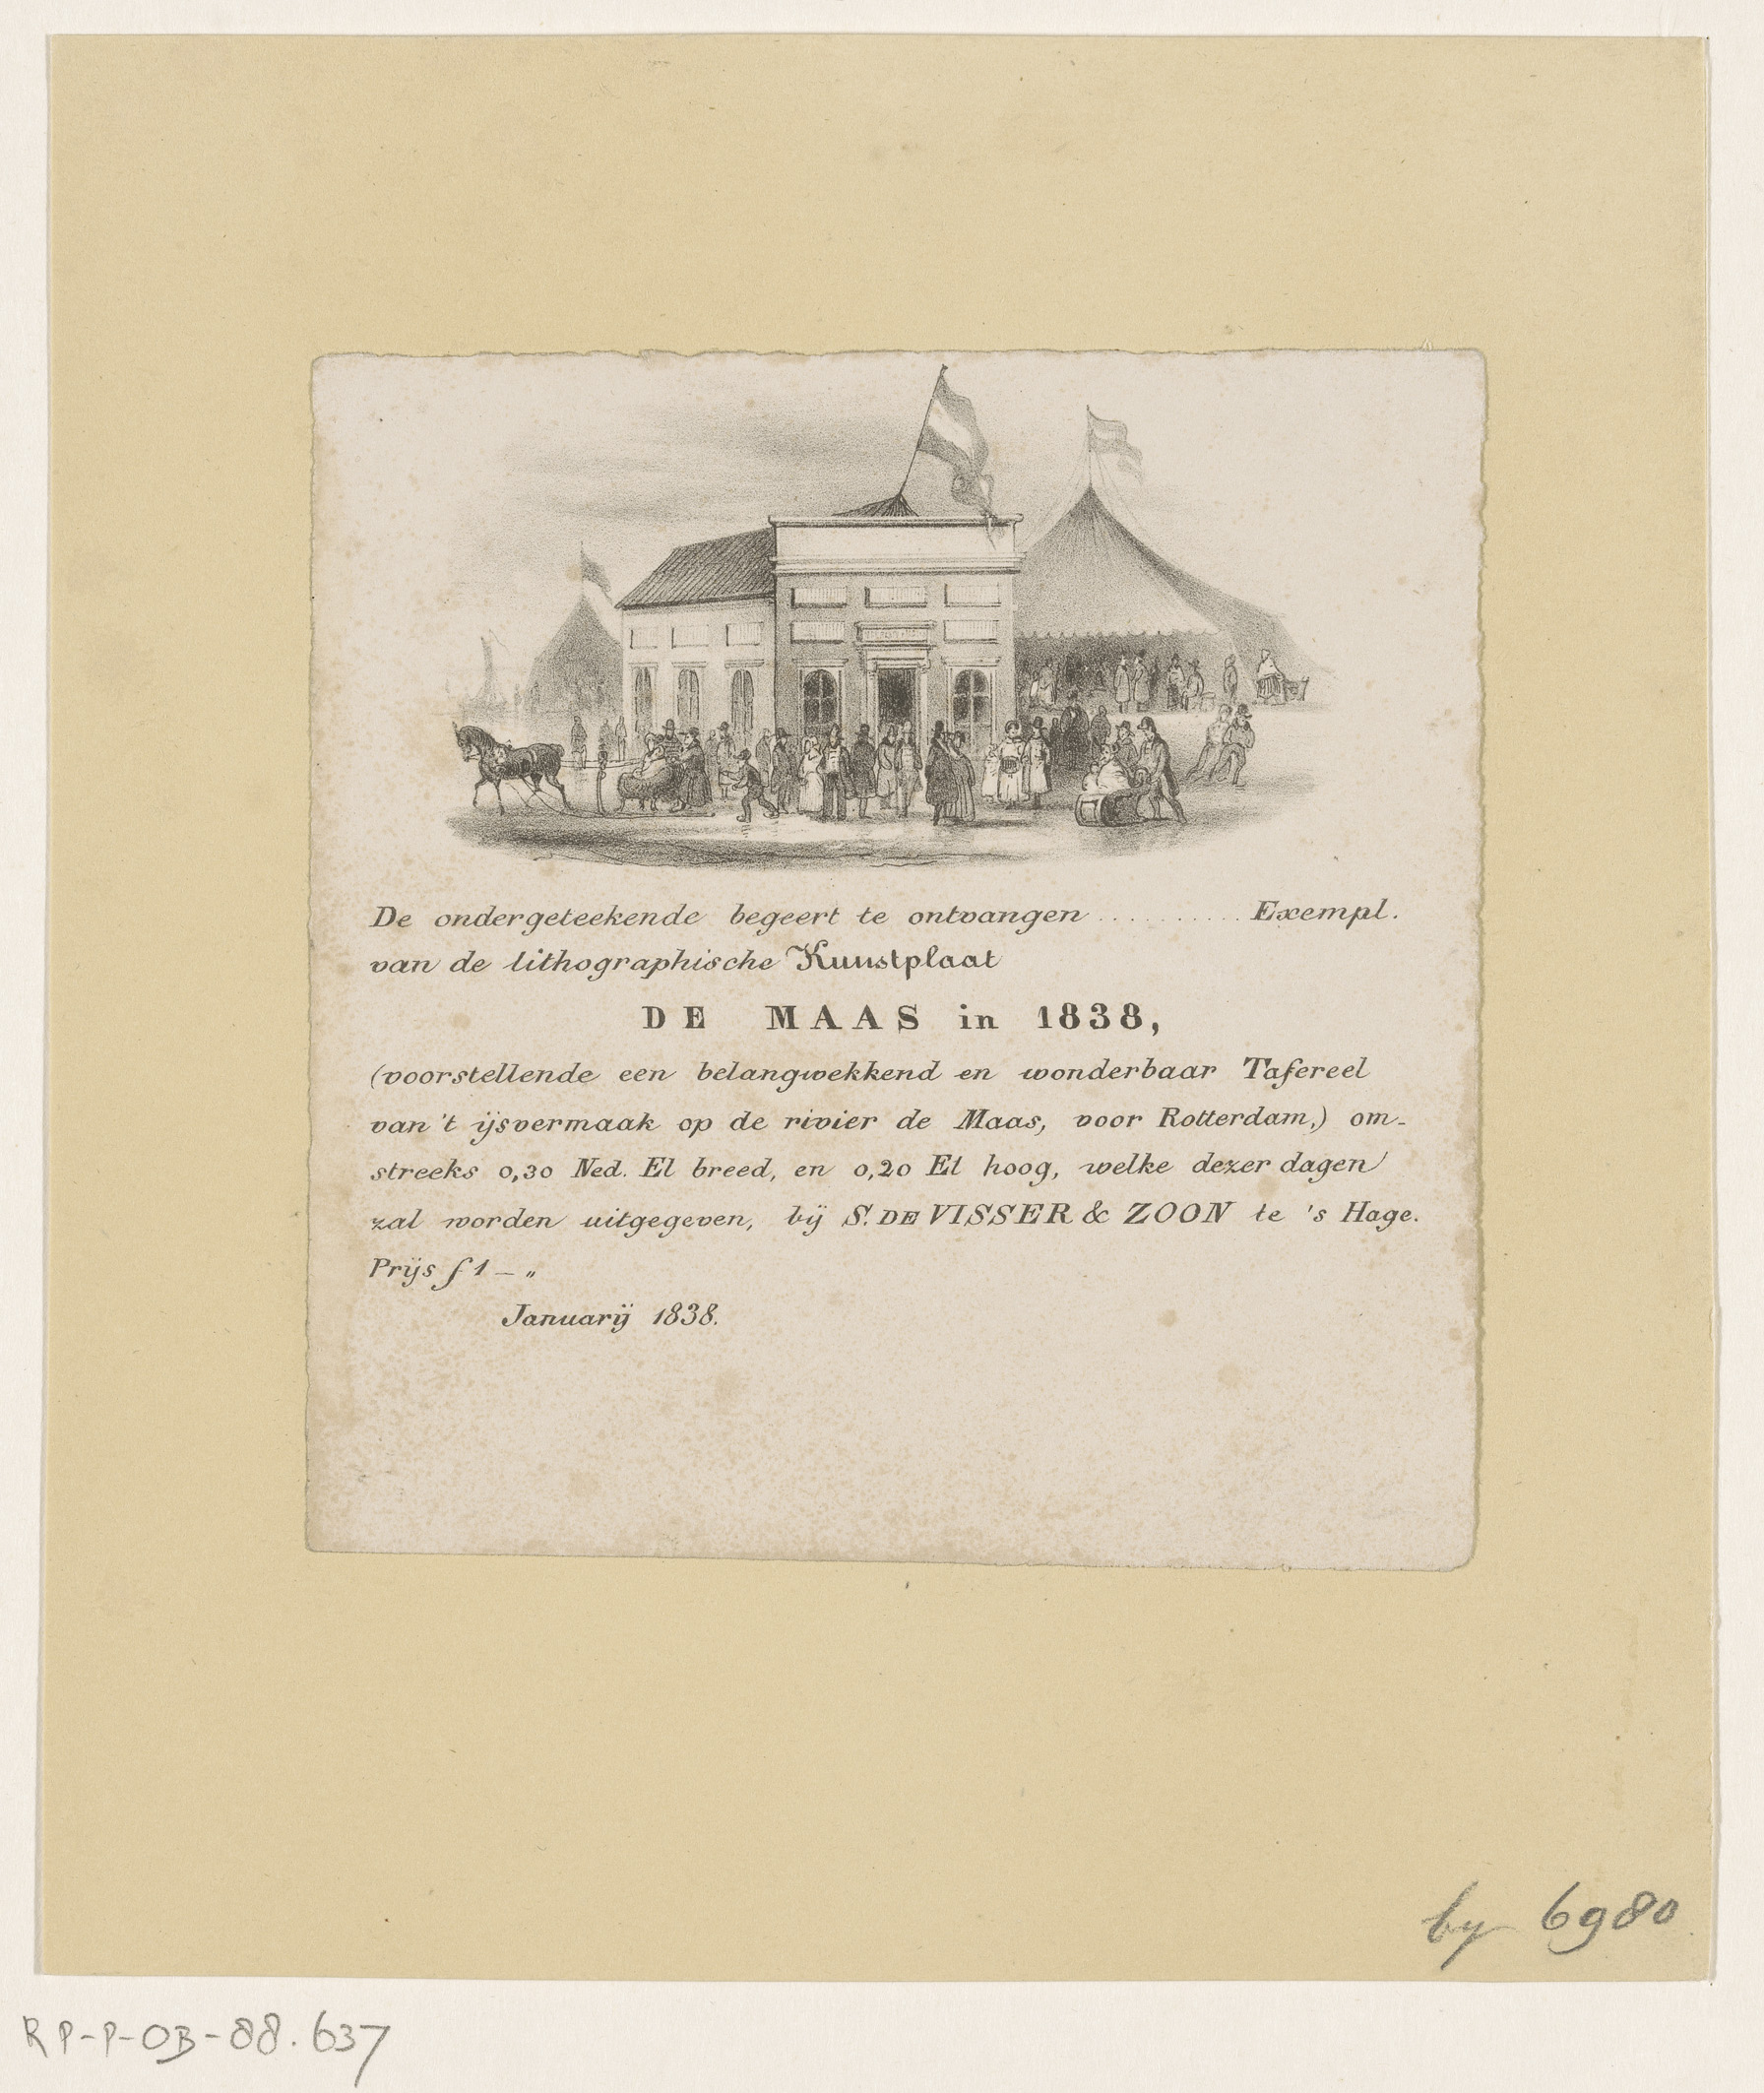 De ondergeteekende begeert te ontvangen .......... Exempl.
van de lithographische Kunstplaat
DE MAAS in 1838,
(voorstellende een belangwekkend en wonderbaar Tafereel
van 't ijsvermaak op de rivier de Maas, voor Rotterdam,) om-
streeks 0,30 Ned. El breed, en 0,20 El hoog, welke dezer dagen
zal worden uitgegeven, bij S. DE VISSER & ZOON te 's Hage.
Prijs f 1 — „
Januarij 1838.
by 6980
RP-P-OB-88.637